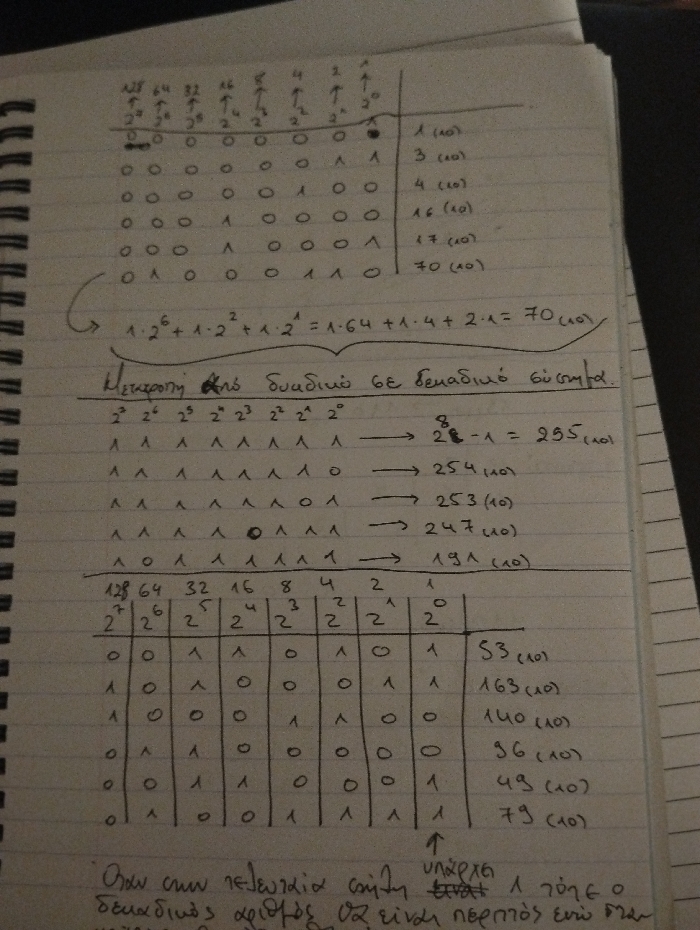 128 64 32 16 8 4 2 1
↑ ↑ ↑ ↑ ↑ ↑ ↑ ↑
2⁷ 2⁶ 2⁵ 2⁴ 2³ 2² 2¹ 2⁰
0 0 0 0 0 0 0 1 1(10)
0 0 0 0 0 0 1 1 3(10)
0 0 0 0 0 1 0 0 4(10)
0 0 0 1 0 0 0 0 16(10)
0 0 0 1 0 0 0 1 17(10)
0 1 0 0 0 1 1 0 70(10)
1·2⁶ + 1·2² + 1·2¹ = 1·64 + 1·4 + 2·1 = 70(10)
Μετατροπή από δυαδικό σε δεκαδικό σύστημα.
2⁷ 2⁶ 2⁵ 2⁴ 2³ 2² 2¹ 2⁰
1 1 1 1 1 1 1 1 → 2⁸ - 1 = 255(10)
1 1 1 1 1 1 1 0 → 254(10)
1 1 1 1 1 1 0 1 → 253(10)
1 1 1 1 0 1 1 1 → 247(10)
1 0 1 1 1 1 1 1 → 191(10)
128 64 32 16 8 4 2 1
2⁷ 2⁶ 2⁵ 2⁴ 2³ 2² 2¹ 2⁰
0 0 1 1 0 1 0 1 53(10)
1 0 1 0 0 0 1 1 163(10)
1 0 0 0 1 1 0 0 140(10)
0 1 1 0 0 0 0 0 96(10)
0 0 1 1 0 0 0 1 49(10)
0 1 0 0 1 1 1 1 79(10)
↑
Όταν στην τελευταία στήλη υπάρχει 1 τότε ο
δεκαδικός αριθμός θα είναι περιττός ενώ όταν